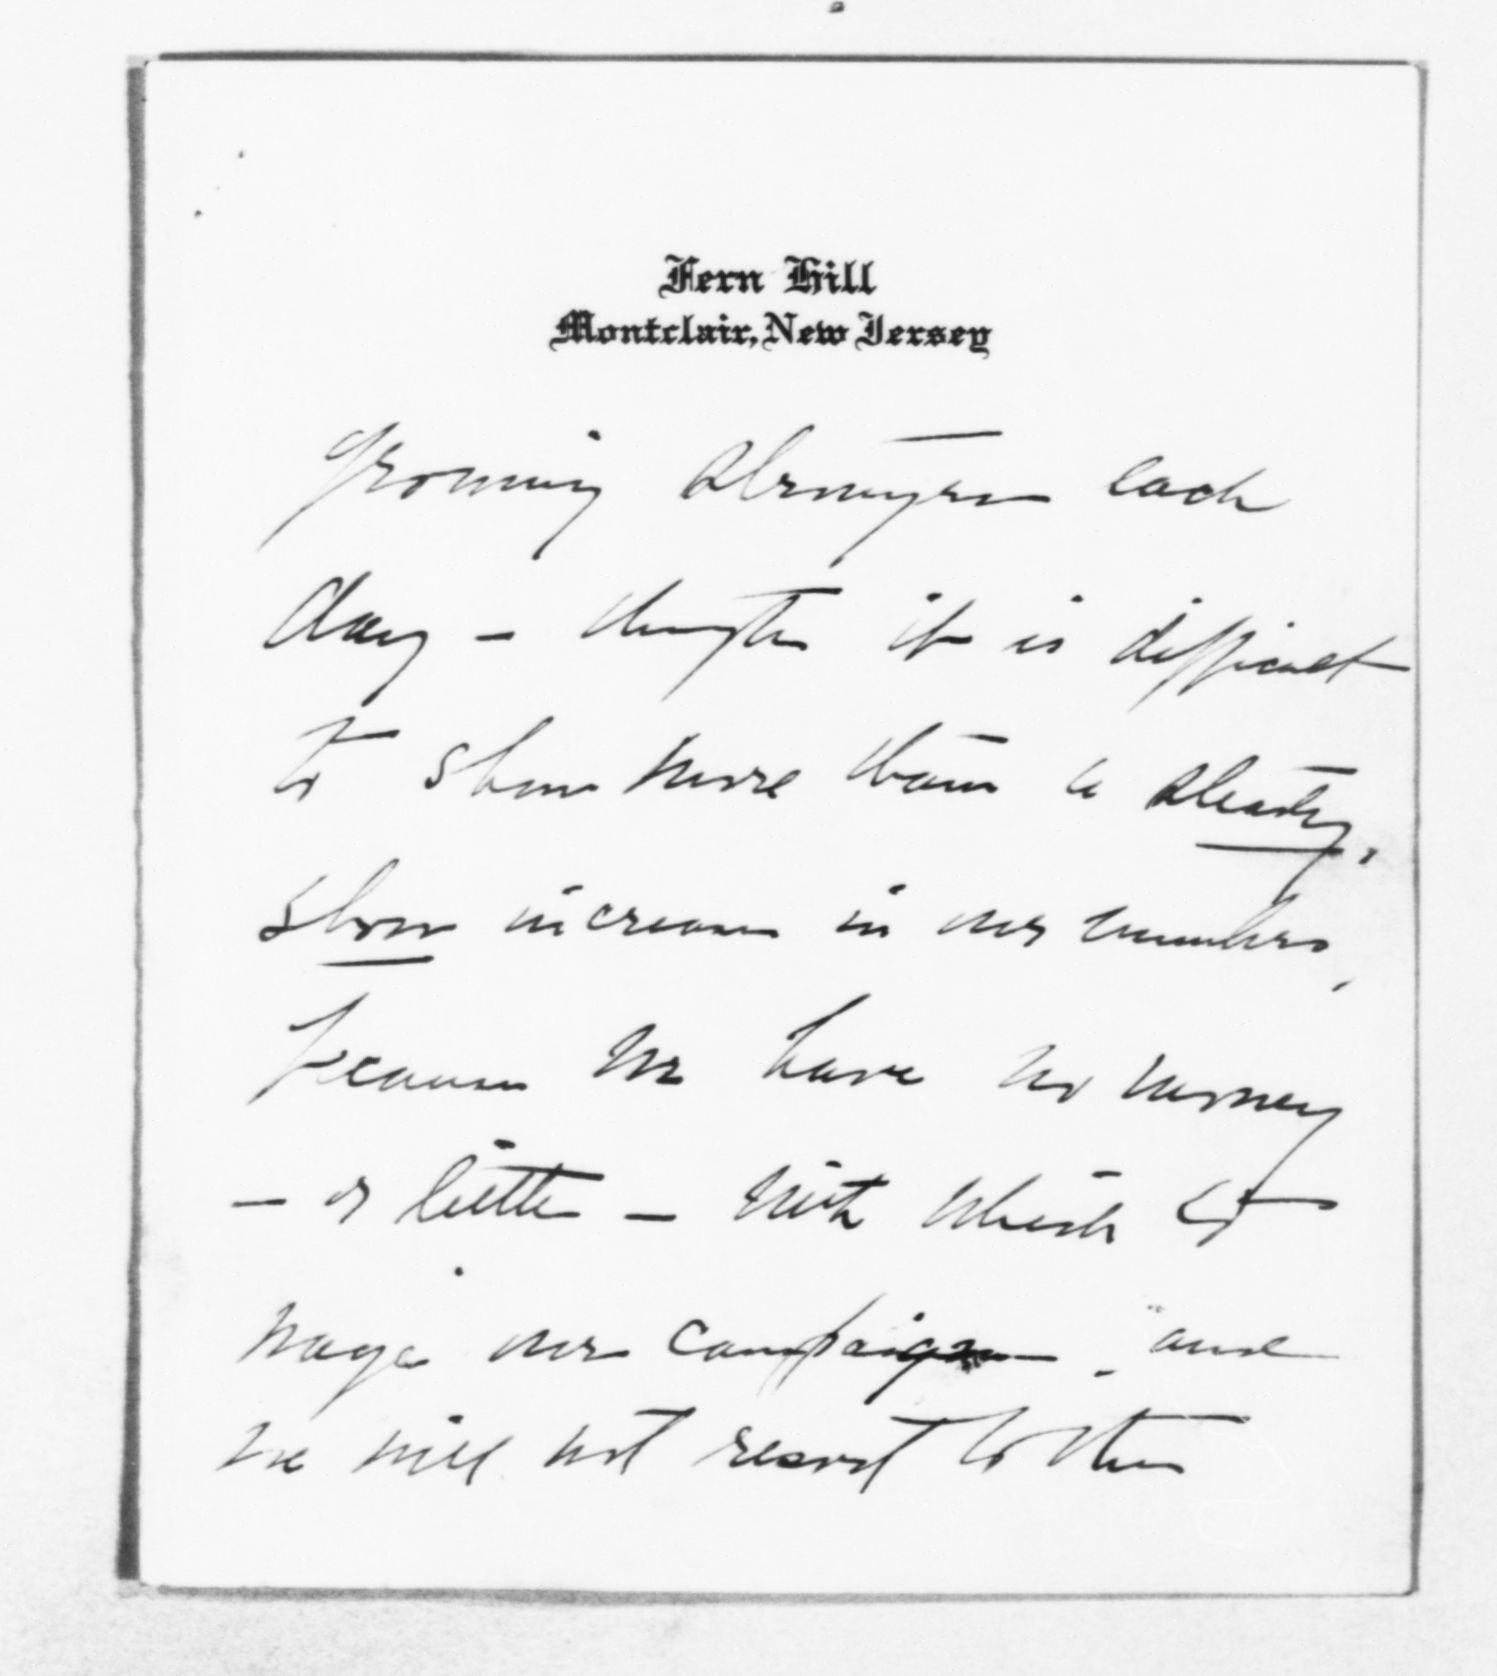 Fern Hill
Montclair, New Jersey
growing stronger each
day – though it is difficult
to show more than a steady,
slow increase in our numbers,
because we have no money
– or little – with which to
wage our campaign, and
we will not resort to the